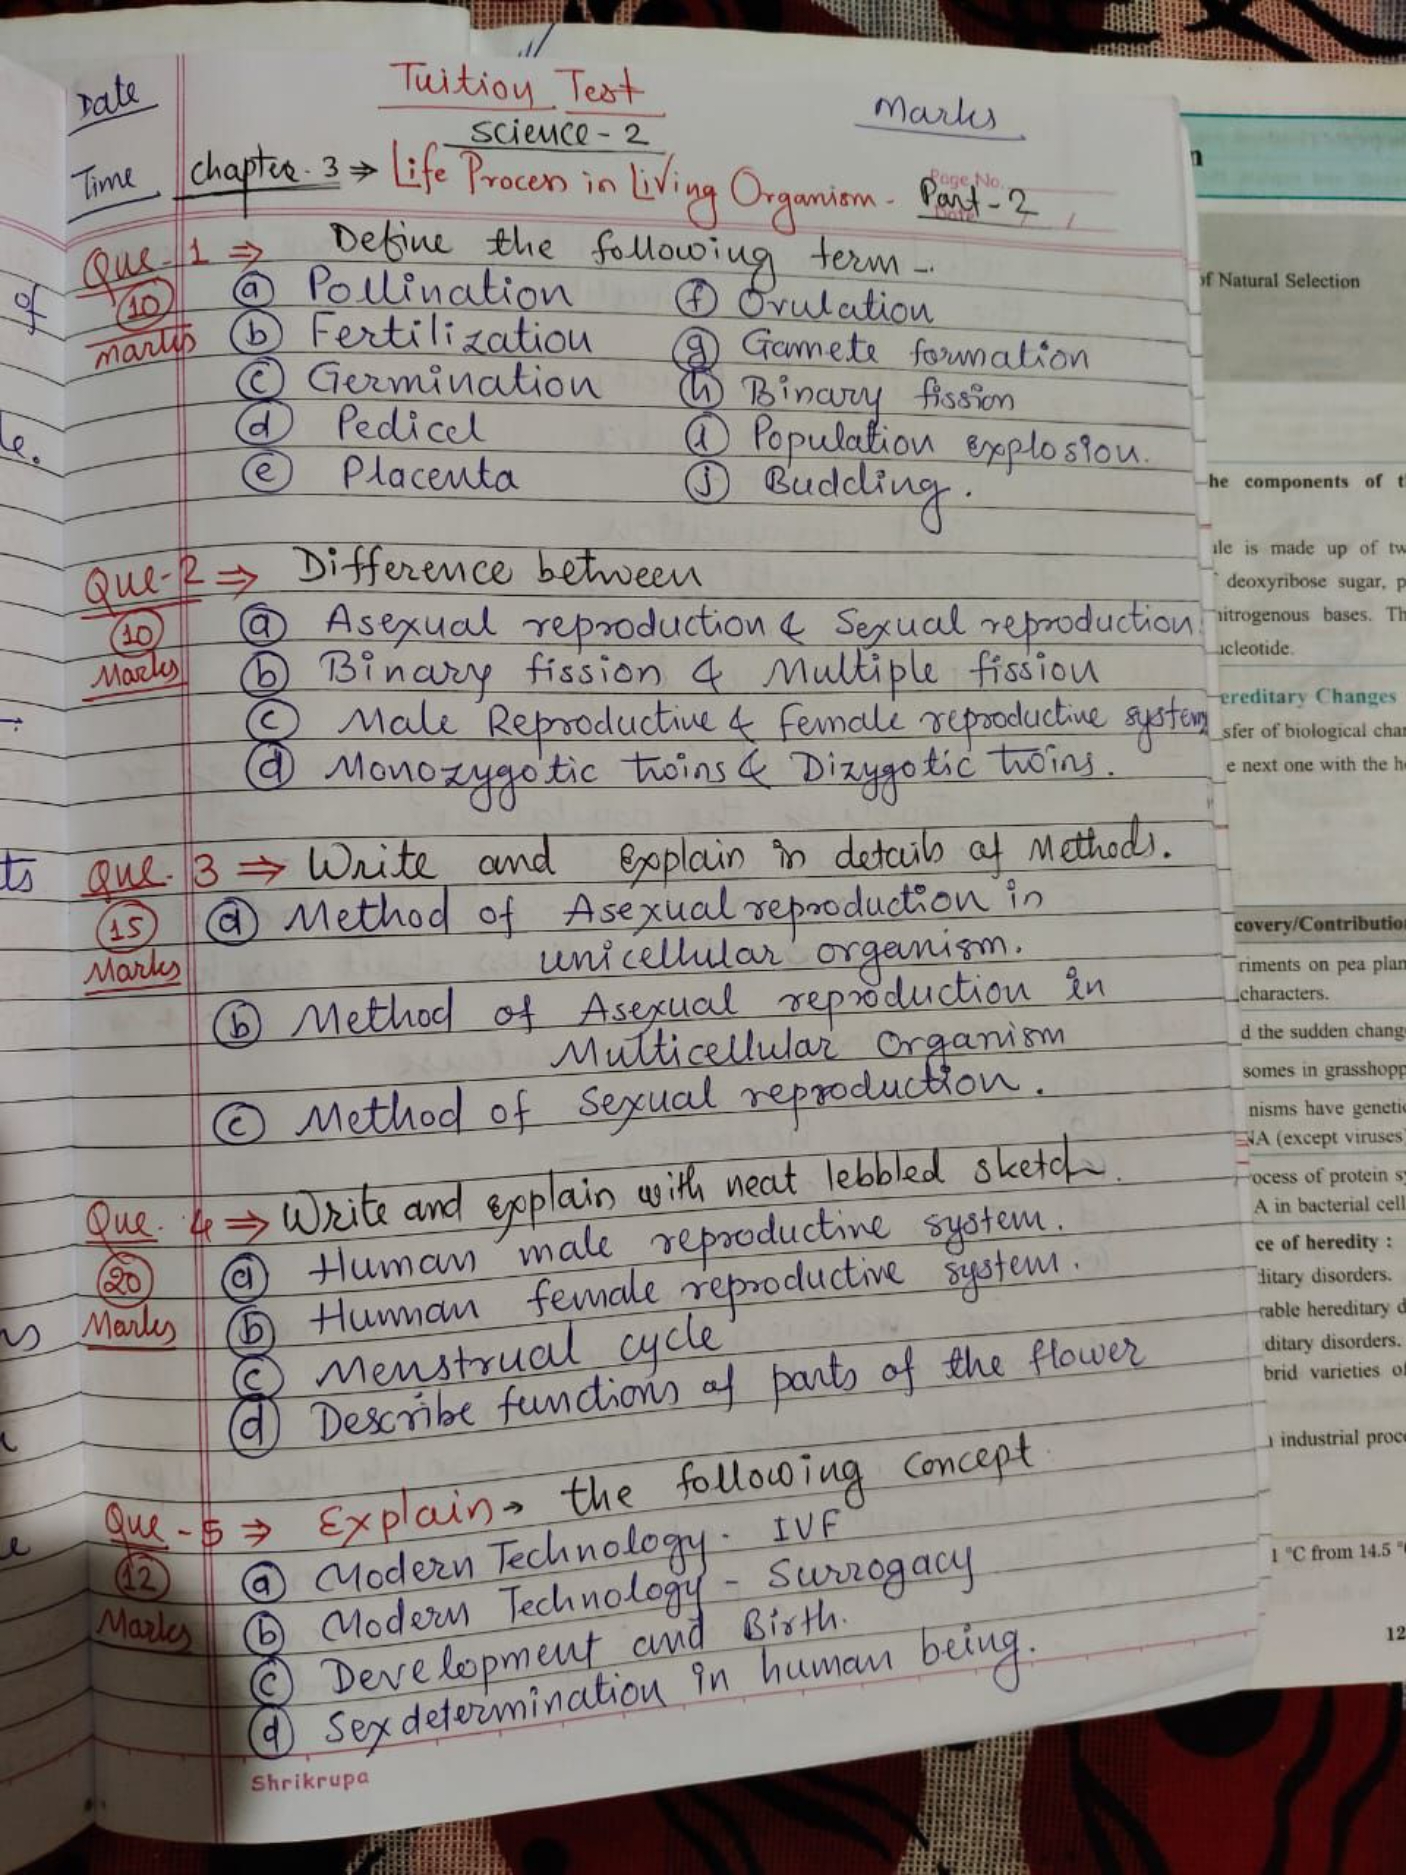 Date
Tuition Test
Marks
Science-2
Time
Chapter. 3 ⇒ Life Process in Living Organism - Part-2
Page No.
Date
Que-1 ⇒ Define the following term -.
10 marks
(a) Pollination (f) Ovulation
(b) Fertilization (g) Gamete formation
(c) Germination (h) Binary fission
(d) Pedicel (i) Population explosion.
(e) Placenta (j) Budding.
Que-2 ⇒ Difference between
10 Marks
(a) Asexual reproduction & Sexual reproduction
(b) Binary fission & Multiple fission
(c) Male Reproductive & female reproductive system
(d) Monozygotic twins & Dizygotic twins.
Que. 3 ⇒ Write and Explain in details of Methods.
15 Marks
(a) Method of Asexual reproduction in
unicellular organism.
(b) Method of Asexual reproduction in
Multicellular Organism
(c) Method of Sexual reproduction.
Que. 4 ⇒ Write and explain with neat lebbled sketch.
20 Marks
(a) Human male reproductive system.
(b) Human female reproductive system.
(c) Menstrual cycle
(d) Describe functions of parts of the flower
Que-5 ⇒ Explain → the following concept.
12 Marks
(a) Modern Technology - IVF
(b) Modern Technology - Surrogacy
(c) Development and Birth.
(d) Sex determination in human being.
Shrikrupa
of
of Natural Selection
he components of
is made up of
deoxyribose sugar, p
nitrogenous bases. Th
ucleotide.
ereditary Changes
sfer of biological
e next one with the
covery/Contribution
riments on pea
characters.
d the sudden
somes in
nisms have
NA (except viruses
ocess of protein
A in bacterial cell
ce of heredity :
ditary disorders.
rable hereditary d
ditary disorders.
brid varieties of
industrial
1 °C from 14.5
12